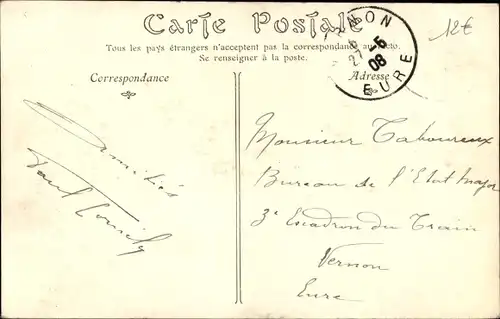 Carte Postale
Tous les pays étrangers n'acceptent pas la correspondance au recto.
Se renseigner à la poste.
Correspondance
Adresse
VERNON
27 -5
08
EURE
12€
Amitiés
Paul
Monsieur Taboureux
Bureau de l'Etat Major
3e Escadron du Train
Vernon
Eure